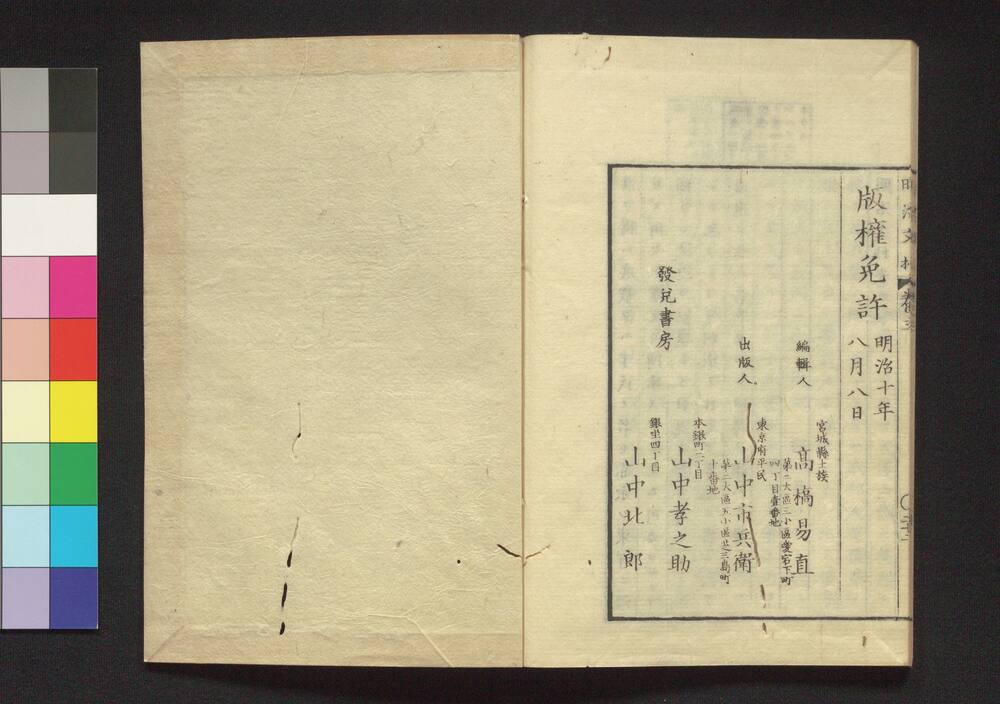 版權免許
明治十年
八月八日
編輯人
宮城縣士族
高槁易直
第二大區三小區愛宕下町
四丁目壹番地
出版人
東京府平民
山中市兵衛
第二大區五小區芝三島町
十番地
發兌書房
本銀町二丁目
山中孝之助
銀坐四丁目
山中北郎